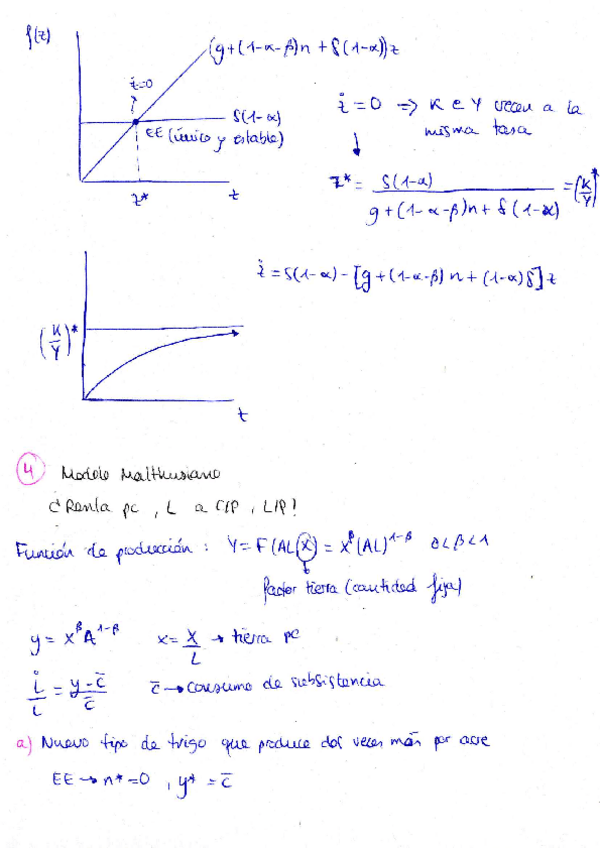 f(z)
(g+(1-α-β)n + δ(1-α))z
ż=0
s(1-α)
EE (único y estable)
z*
z
ż = 0 ⟹ K e Y crecen a la
misma tasa
z* = s(1-α) / g+(1-α-β)n+δ(1-α) = (K/Y)*
ż = s(1-α) - [g+(1-α-β)n+(1-α)δ]z
(K/Y)*
t
4 Modelo Malthusiano
¿Renta pc, L a C/P, L/P?
Función de producción: Y=F(AL,X) = X^β(AL)^1-β 0<β<1
factor tierra (cantidad fija)
y = x^β A^1-β x = X/L → tierra pc
L̇/L = y-c̄/c̄ c̄ → consumo de subsistencia
a) Nuevo tipo de trigo que produce dos veces más por acre
EE → n*=0, y* = c̄